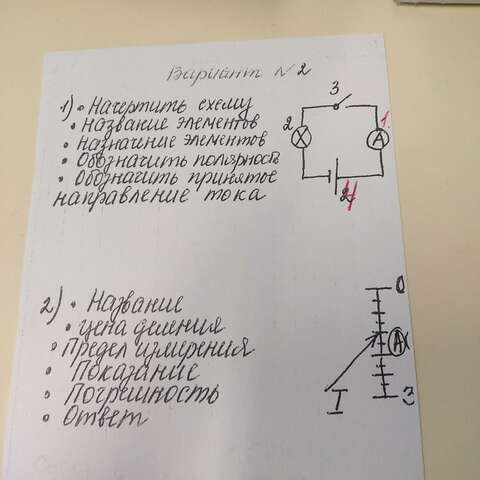 Вариант N 2
1) • Начертить схему
• Название элементов
• Назначение элементов
• Обозначить полярность
• Обозначить принятое
направление тока
3
2
1.
A
4
2) • Название
• цена деления
• Предел измерения
• Показание
• Погрешность
• Ответ
0
A
I
3